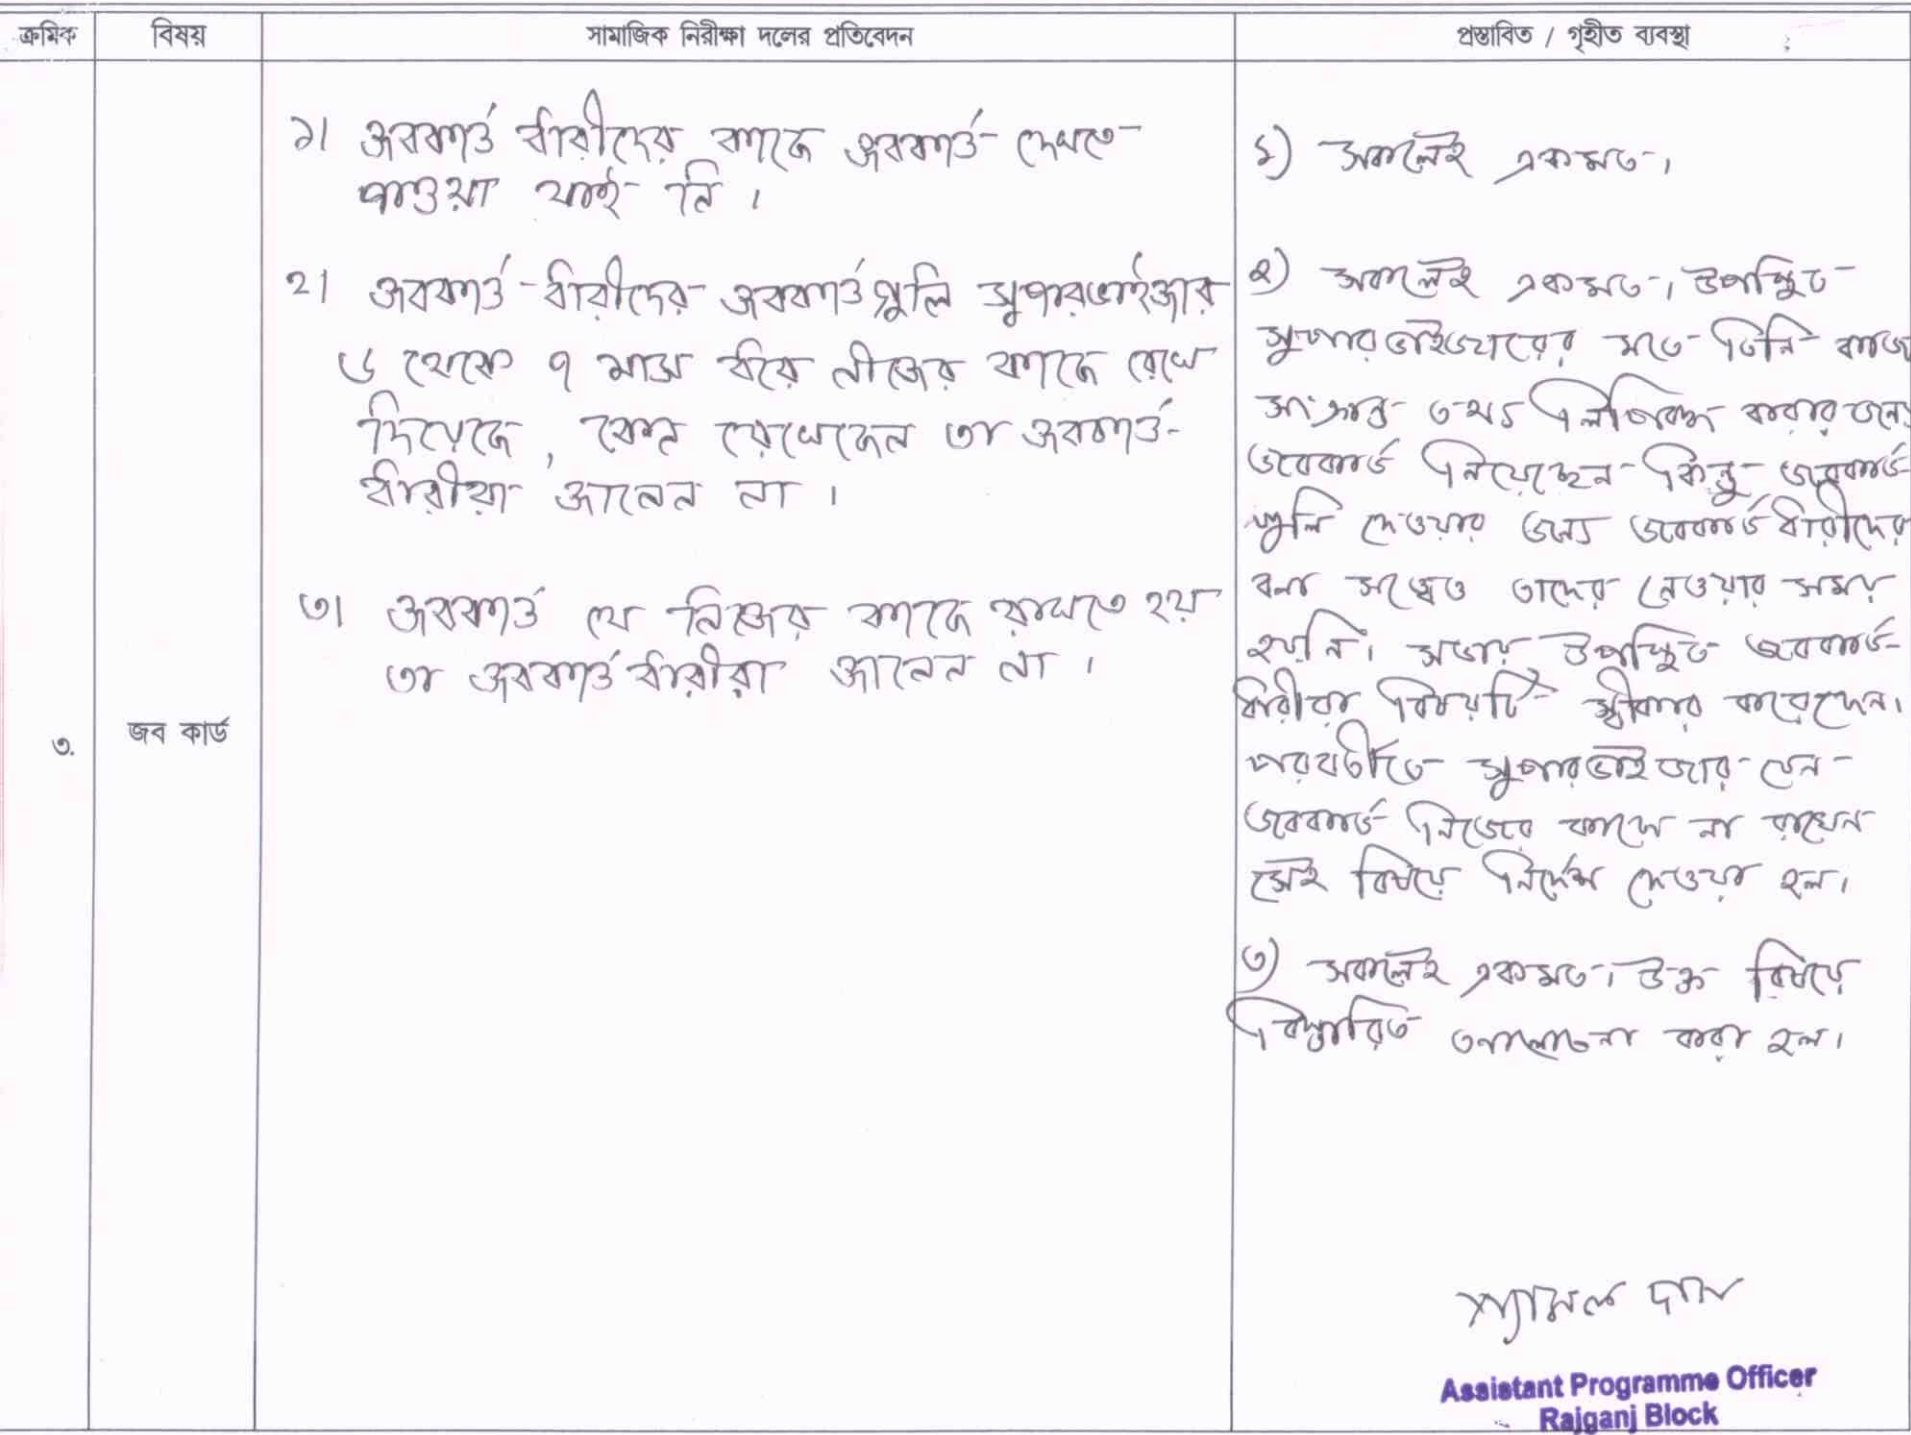 ক্রমিক
বিষয়
সামাজিক নিরীক্ষা দলের প্রতিবেদন
প্রস্তাবিত / গৃহীত ব্যবস্থা
৩.
জব কার্ড
১। জবকার্ড ধারীদের কাছে জবকার্ড দেখতে
পাওয়া যাই নি ।
২। জবকার্ড ধারীদের জবকার্ডগুলি সুপারভাইজার
৬ থেকে ৭ মাস ধরে নীজের কাছে রেখে
দিয়েছে, কেন রেখেছেন তা জবকার্ড
ধারীরা জানেন না ।
৩। জবকার্ড যে নিজের কাছে রাখতে হয়
তা জবকার্ড ধারীরা জানেন না ।
১) সকলেই একমত।
২) সকলেই একমত। উপস্থিত
সুপারভাইজারের মতে তিনি কাজ
সংক্রান্ত তথ্য লিপিবদ্ধ করার জন্যে
জবকার্ড নিয়েছেন কিন্তু জবকার্ড
গুলি দেওয়ার জন্যে জবকার্ড ধারীদের
বলা সত্ত্বেও তাদের নেওয়ার সময়
হয়নি। সভায় উপস্থিত জবকার্ড
ধারীরা বিষয়টি স্বীকার করেছেন।
পরবর্তীতে সুপারভাইজার যেন
জবকার্ড নিজের কাছে না রাখেন
সেই বিষয়ে নির্দেশ দেওয়া হল।
৩) সকলেই একমত। উক্ত বিষয়ে
বিস্তারিত আলোচনা করা হল।
শ্যামল দাস
Assistant Programme Officer
Rajganj Block